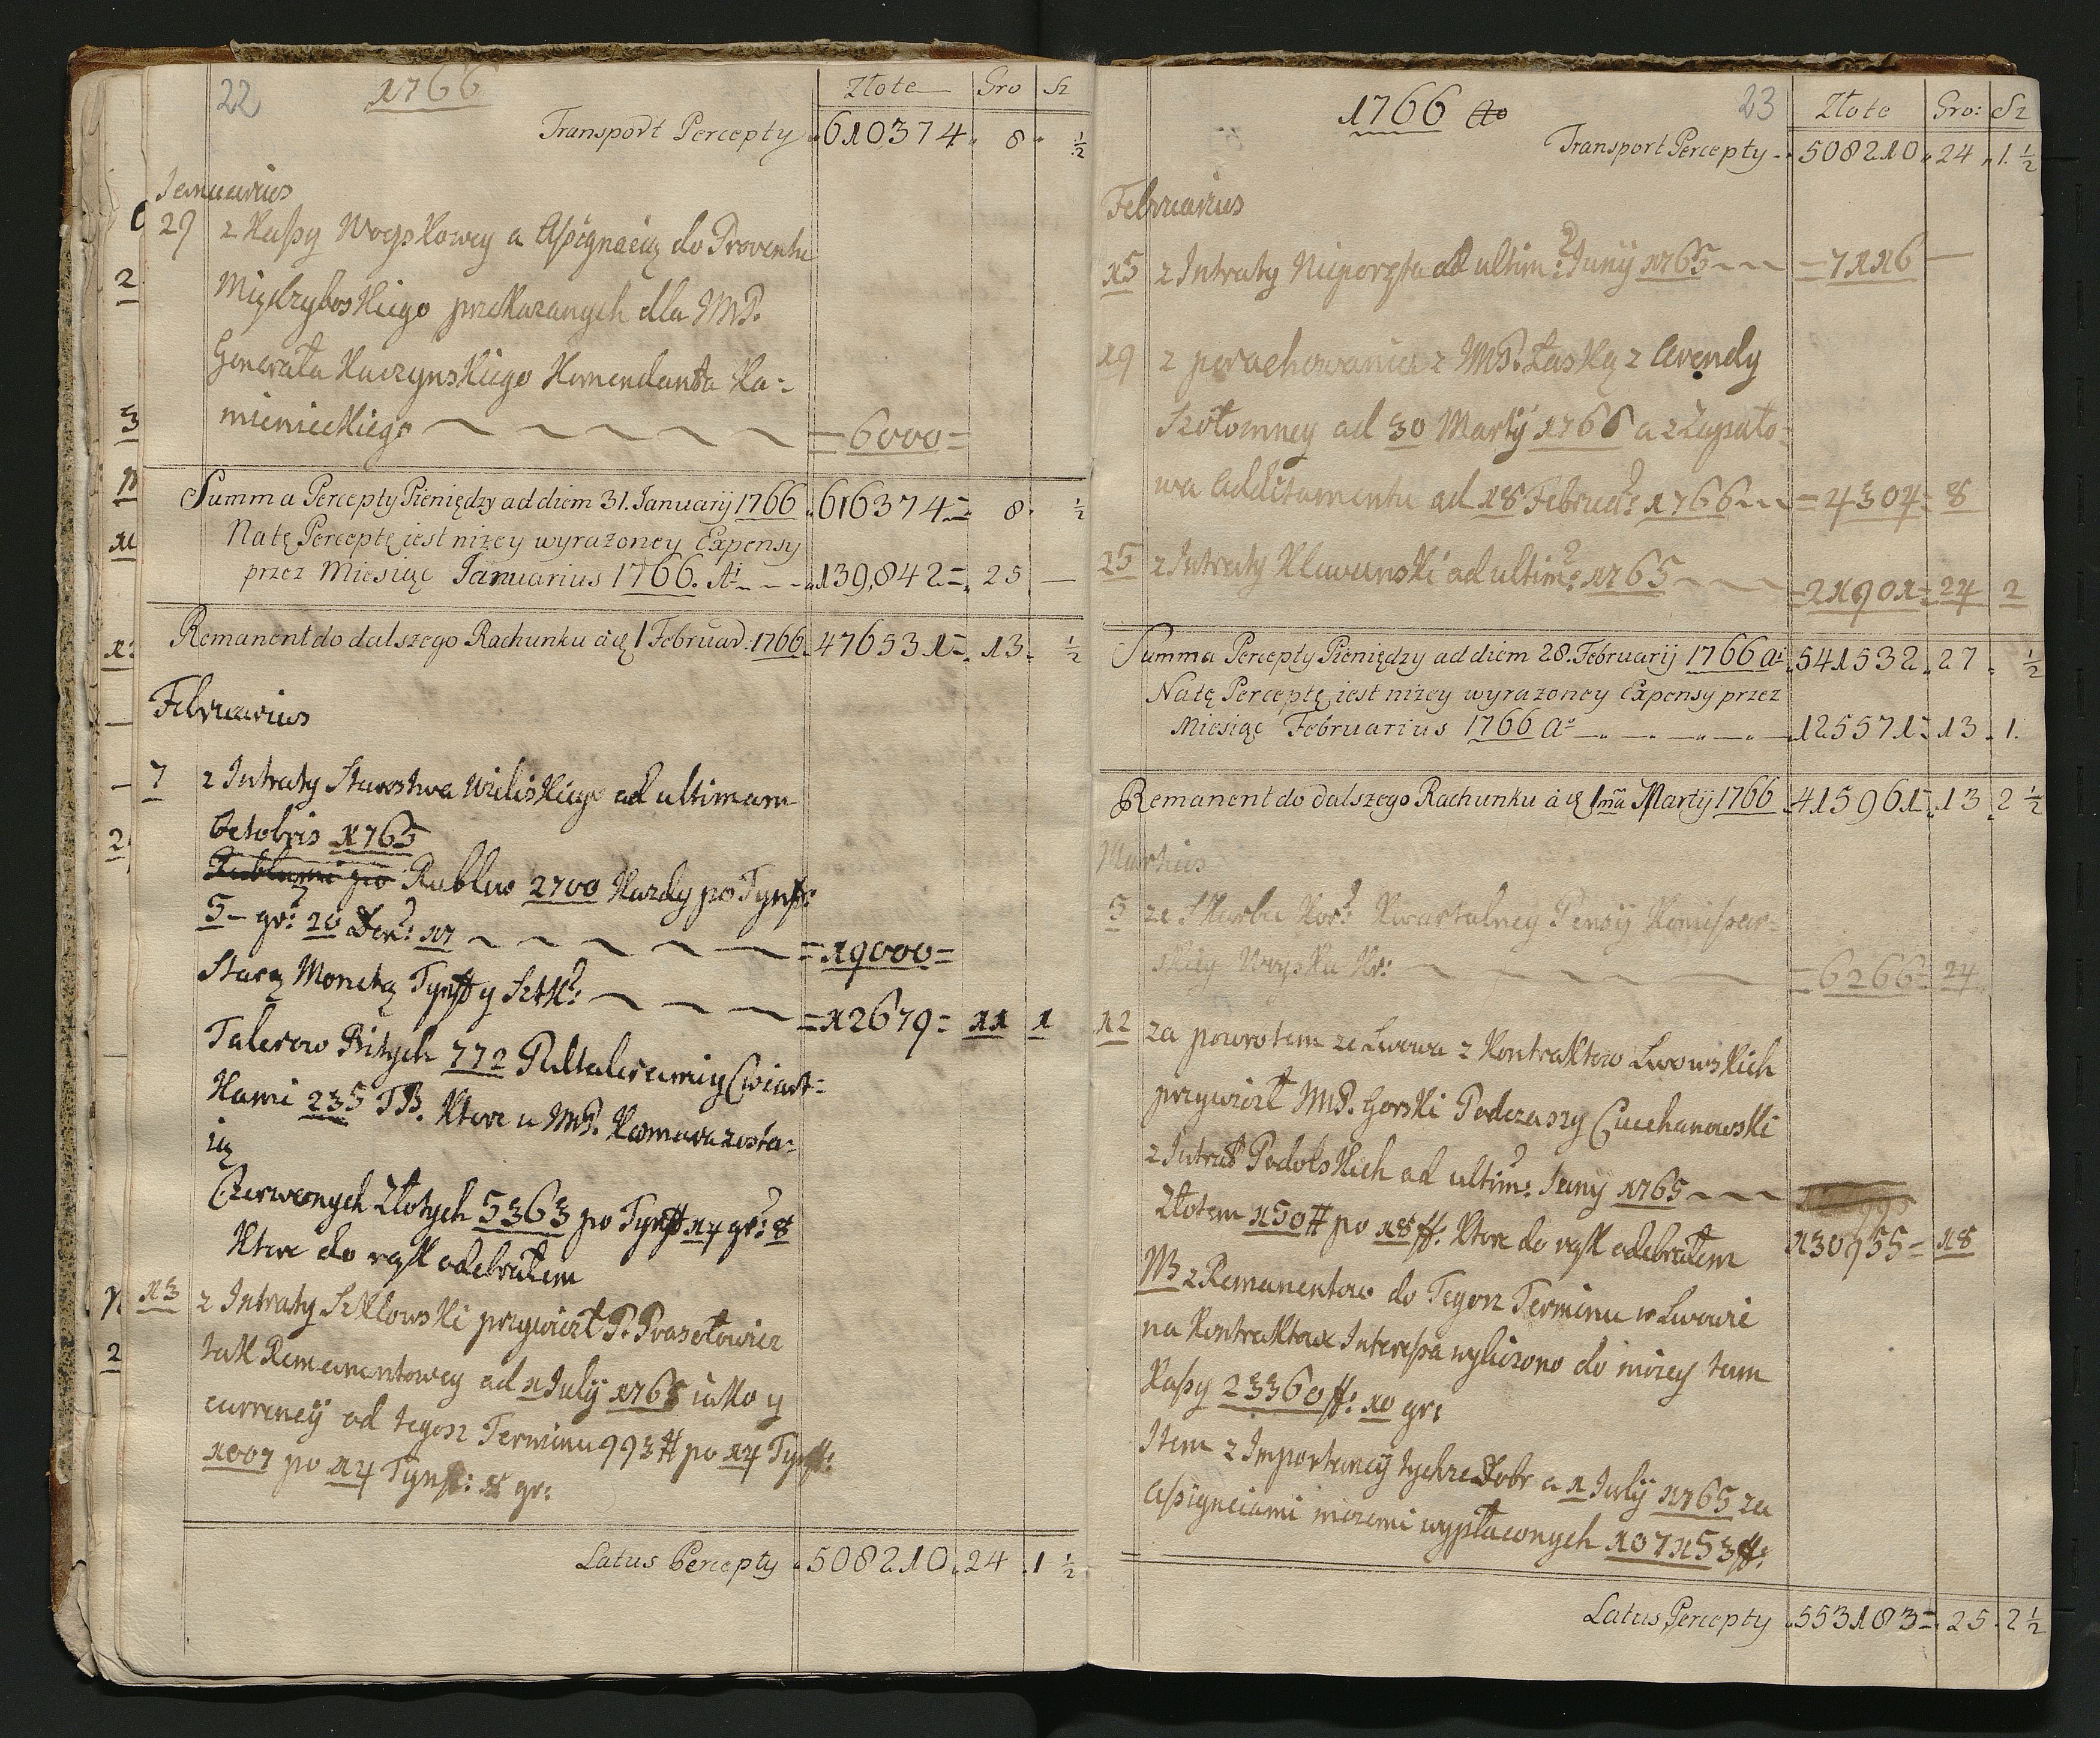 22
1766
Złote Gro Sz
Transport Percepty 610374 8 ½
Januarius
29 z Kaßy Woyskowey a Aßignacią do Proventu
Międzyboskiego przekazanych dla JMP.
Generała Kuczynskiego Komendanta Ka=
mienieckiego = 6000 =
Summa Percepty Pieniędzy ad diem 31. Januarij 1766 616374 8 ½
Na tę Perceptę iest niżey wyrażoney Expensy
przez Miesiąc Januarius 1766. Ai 139,842 = 25 —
Remanent do dalszego Rachunku à d. 1 Februar. 1766 476531 = 13 ½
Februarius
7 z Intraty Starostwa Wieliskiego ad ultimam
Octobris 1765
Rublami po Rublow 2700 Kazdy po Tynf:
5 – gr: 20 Den: 17 = 19000 =
Starą Monetą Tynff y Szk: = 12679 = 11 1
Talerow Bitych 772 Pułtalerami y Cwiart=
kami 235 TB. Ktore u JMP. Komara zosta=
ią
Czerwonych Złotych 5363 po Tynff 14 gr: 8
Ktore do rąk odebrałem
13 z Intraty Szkłowski przywiozł P. Prasołowicz
tak Remanentowey ad 1 Julij 1765 iako y
currencij od tegosz Terminu 993 # po 14 Tynff:
1007 po 14 Tynf: 8 gr:
Latus Percepty 508210 24 1 ½
23
1766 Ao
Złote Gro: Sz
Transport Percepty 508210 24 1 ½
Februarius
15 z Intraty Nieporęta ad ultim: Junij 1765 = 7116 —
19 z porachowania z JMP. Łaską z Arendy
Szołomney ad 30 Martij 1766 a z Łapato=
wa Additamentu ad 18 Februar: 1766 = 4304 = 8
25 z Intraty Klewanski ad ultim: 1765 = 21901 = 24 2
Summa Percepty Pieniędzy ad diem 28. Februarij 1766 a: 541532 27 ½
Na tę Perceptę iest niżey wyrażoney Expensy przez
Miesiąc Februarius 1766 Ao 125571 = 13 1.
Remanent do dalszego Rachunku à d. 1ma Martij 1766 415961 = 13 2 ½
Martius
5 ze Skarbu Kor: Kwartalney Pensij Komißar=
skiey Woyska Kr: = 6266 = 24
12 za powrotem ze Lwowa z Kontraktow Lwowskich
przywiozł JMP. Gorski Podczaszy Ciechanowski
z Intrat Podolskich ad ultim: Junij 1765
Złotem 150 # po 18 ff. Ktore do rąk odebrałem 130955 = 18
NB z Remanentow do Tegosz Terminu w Lwowie
na Kontraktach Intereßa wyliczono do mozey tam
Kaßy 23360 ff: 10 gr:
Item z Importancij tychze Dobr a 1 Julij 1765 za
aßignaciami mozemi wypłaconych 107153 ff:
Latus Percepty 553183 = 25 2 ½